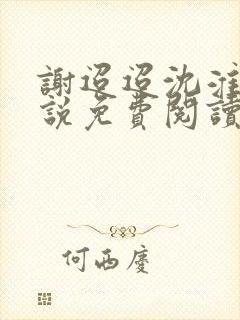 謝迢迢沈淮
說免費閱讀
何西慶